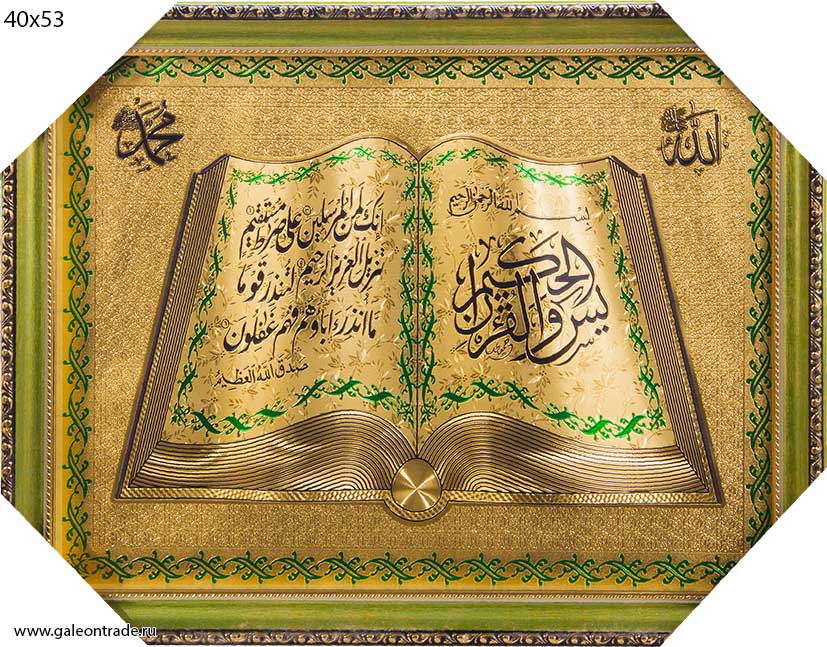 40x53
الله
محمد
بسم الله الرحمن الرحيم
يس والقرآن الحكيم
انك لمن المرسلين على صراط مستقيم
تنزيل العزيز الرحيم لتنذر قوما
ما انذر اباؤهم فهم غفلون
صدق الله العظيم
www.galeontrade.ru